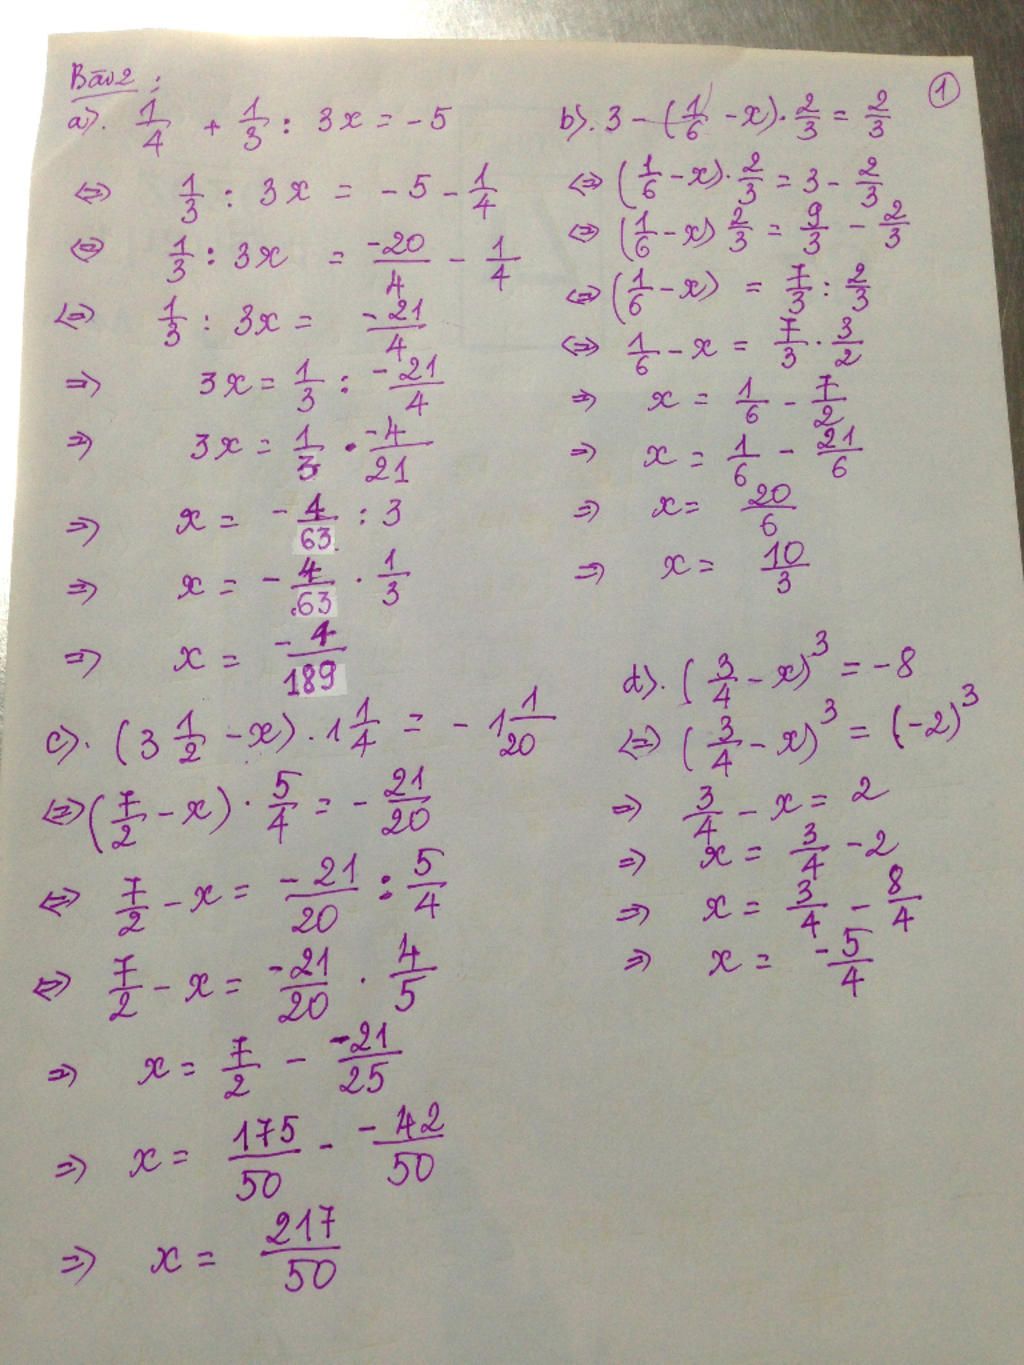 Bài 2:
①
a). 1/4 + 1/3 : 3x = -5
⇔ 1/3 : 3x = -5 - 1/4
⇔ 1/3 : 3x = -20/4 - 1/4
⇔ 1/3 : 3x = -21/4
⇒ 3x = 1/3 : -21/4
⇒ 3x = 1/3 · -4/21
⇒ x = -4/63 : 3
⇒ x = -4/63 · 1/3
⇒ x = -4/189
b). 3 - (1/6 - x) · 2/3 = 2/3
⇔ (1/6 - x) · 2/3 = 3 - 2/3
⇔ (1/6 - x) 2/3 = 9/3 - 2/3
⇔ (1/6 - x) = 7/3 : 2/3
⇔ 1/6 - x = 7/3 · 3/2
⇒ x = 1/6 - 7/2
⇒ x = 1/6 - 21/6
⇒ x = 20/6
⇒ x = 10/3
c). (3 1/2 - x) · 1 1/4 = - 1 1/20
⇔ (7/2 - x) · 5/4 = - 21/20
⇔ 7/2 - x = -21/20 : 5/4
⇔ 7/2 - x = -21/20 · 4/5
⇒ x = 7/2 - -21/25
⇒ x = 175/50 - -42/50
⇒ x = 217/50
d). (3/4 - x)³ = -8
⇔ (3/4 - x)³ = (-2)³
⇒ 3/4 - x = 2
⇒ x = 3/4 - 2
⇒ x = 3/4 - 8/4
⇒ x = -5/4